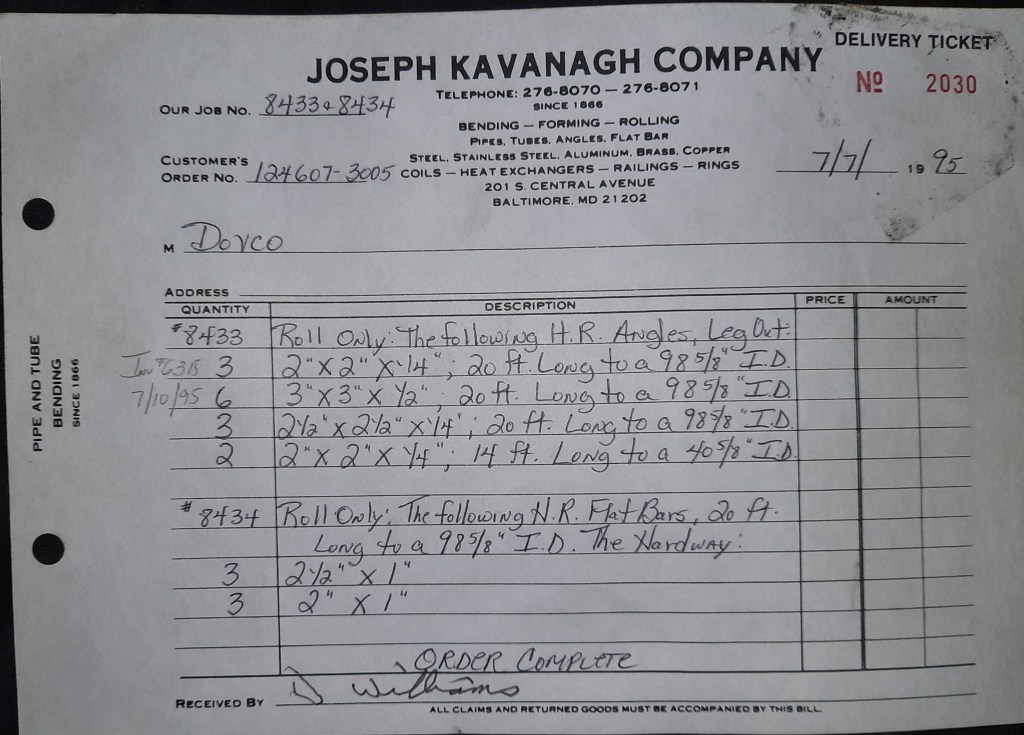 DELIVERY TICKET
JOSEPH KAVANAGH COMPANY
Nº 2030
TELEPHONE: 276-8070 — 276-8071
SINCE 1866
OUR JOB NO. 8433 & 8434
BENDING — FORMING — ROLLING
PIPES, TUBES, ANGLES, FLAT BAR
STEEL, STAINLESS STEEL, ALUMINUM, BRASS, COPPER
CUSTOMER'S
ORDER NO. 124607-3005
COILS — HEAT EXCHANGERS — RAILINGS — RINGS
7/7/ 19 95
201 S. CENTRAL AVENUE
BALTIMORE, MD 21202
M Dovco
ADDRESS
QUANTITY DESCRIPTION PRICE AMOUNT
#8433 Roll Only: The following H.R. Angles, Leg Out:
3 2" X 2" X 1/4"; 20 ft. Long to a 98 5/8" I.D.
7/10/95 6 3" X 3" X 1/2"; 20 ft. Long to a 98 5/8" I.D.
3 2 1/2" X 2 1/2" X 1/4"; 20 ft. Long to a 98 5/8" I.D.
2 2" X 2" X 1/4"; 14 ft. Long to a 40 5/8" I.D.
#8434 Roll Only: The following H.R. Flat Bars, 20 ft.
Long to a 98 5/8" I.D. The Hardway:
3 2 1/2" X 1"
3 2" X 1"
ORDER COMPLETE
RECEIVED BY D Williams
ALL CLAIMS AND RETURNED GOODS MUST BE ACCOMPANIED BY THIS BILL
PIPE AND TUBE
BENDING
SINCE 1866